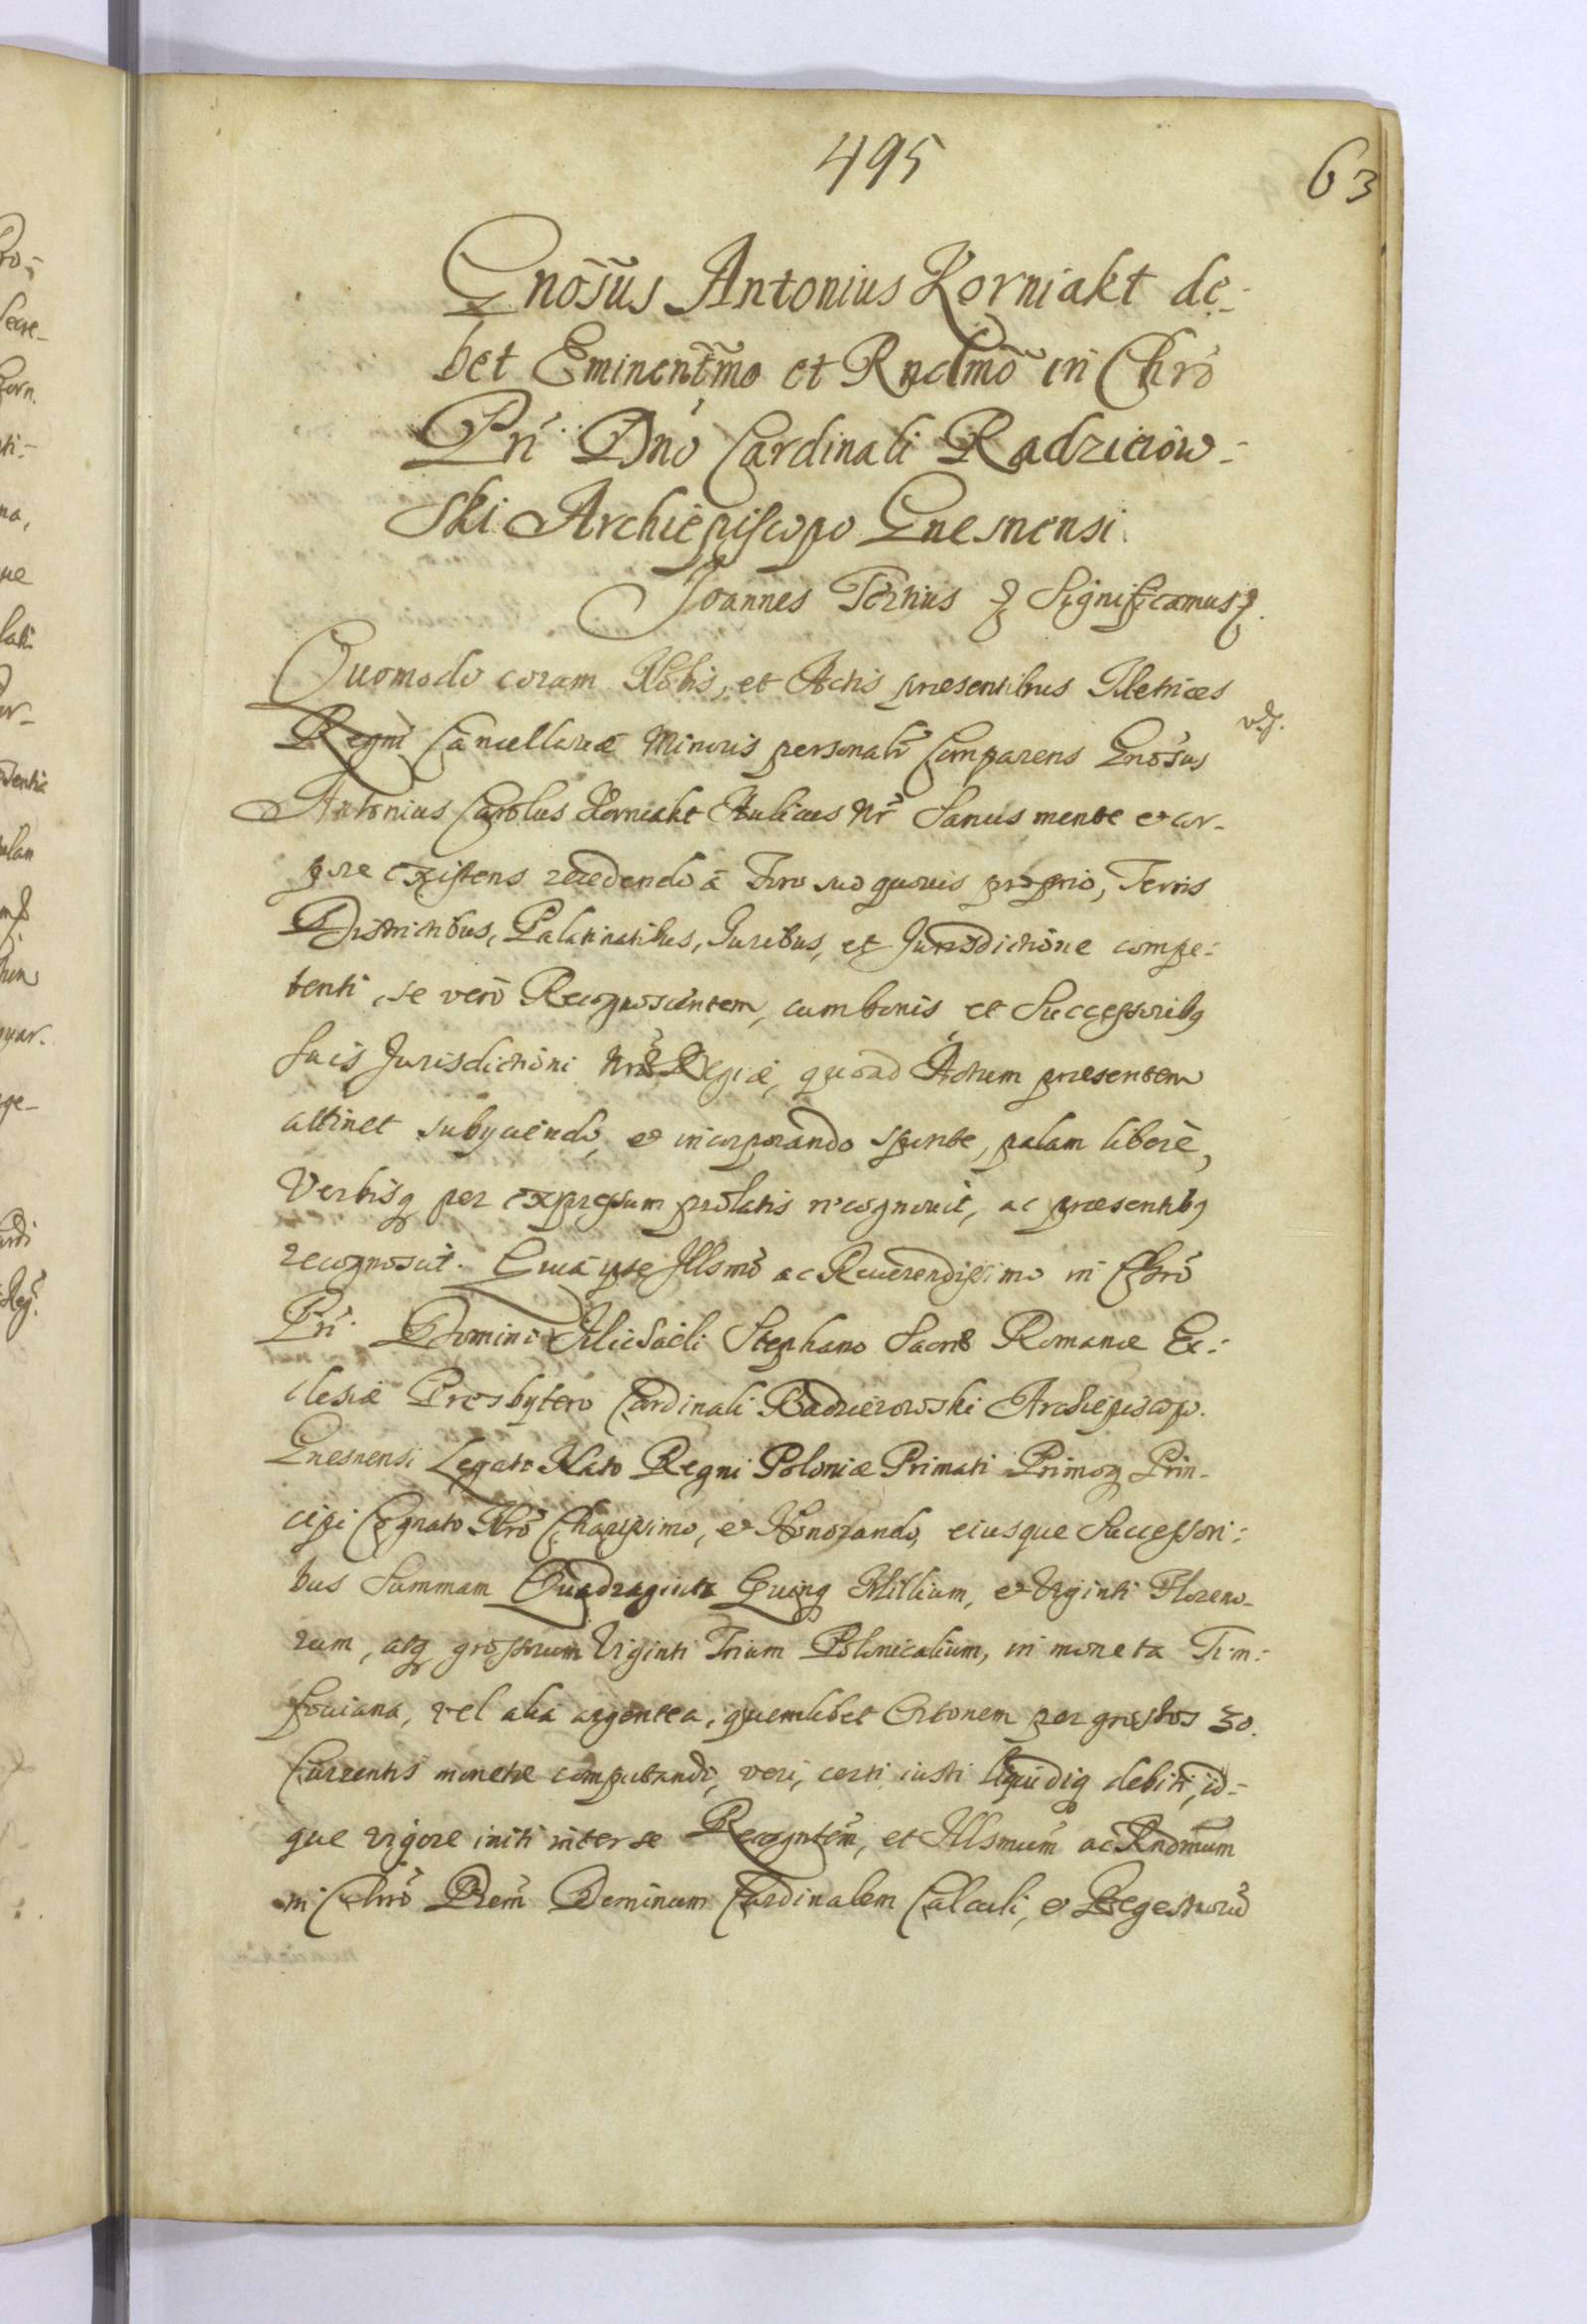 495
63
Gnosus Antonius Korniakt de-
bet Eminentmo et Rndmo in Chro
Pri Dno Cardinali Radzieiow-
ski Archiepiscopo Gnesnensi.
Joannes Tertius & Significamus &.
Quomodo coram Nobis, et Actis præsentibus Metrices
Regni Cancellariæ Minoris personalr Comparens Gnosus
Antonius Carolus Korniakt Aulicus Nr Sanus mente et cor-
pore existens recedendo à Foro suo quovis proprio, Terris
Districtibus, Palatinatibus, Juribus, et Jurisdictione compe-
tenti, se verò Recognoscentem, cum bonis et Successoribq
suis Jurisdictioni Nræ Regiæ, quoad Actum præsentem
attinet subyciendo, et incorporando sponte, palam liberè,
Verbisq per expressum prolatis recognovit, ac præsentibq
recognoscit. Quia ipse Illsmo ac Reverendissimo in Chro
Pri Domini Michaeli Stephano Sacræ Romanæ Ec-
clesiæ Presbytero Cardinali Radzieiowski Archiepiscop.
Gnesnensi Legato Nato Regni Poloniæ Primati Primoq Prin-
cipi Cognato Nro Charissimo, et Honorando, eiusque Successori-
bus Summam Quadraginta Quinq Millium, et Viginti Floreno-
rum, atq grossorum Viginti Trium Polonicalium, in moneta Tim-
foviana, vel alia argentea, quemlibet Ortonem per grossos 30.
Currentis monetæ computando, veri, certi iusti liquidiq debiti, id-
que vigore initi inter se Recogntem, et Illsmum ac Rndmum
in Chro Prem Dominum Cardinalem Calculi, et Regestorū